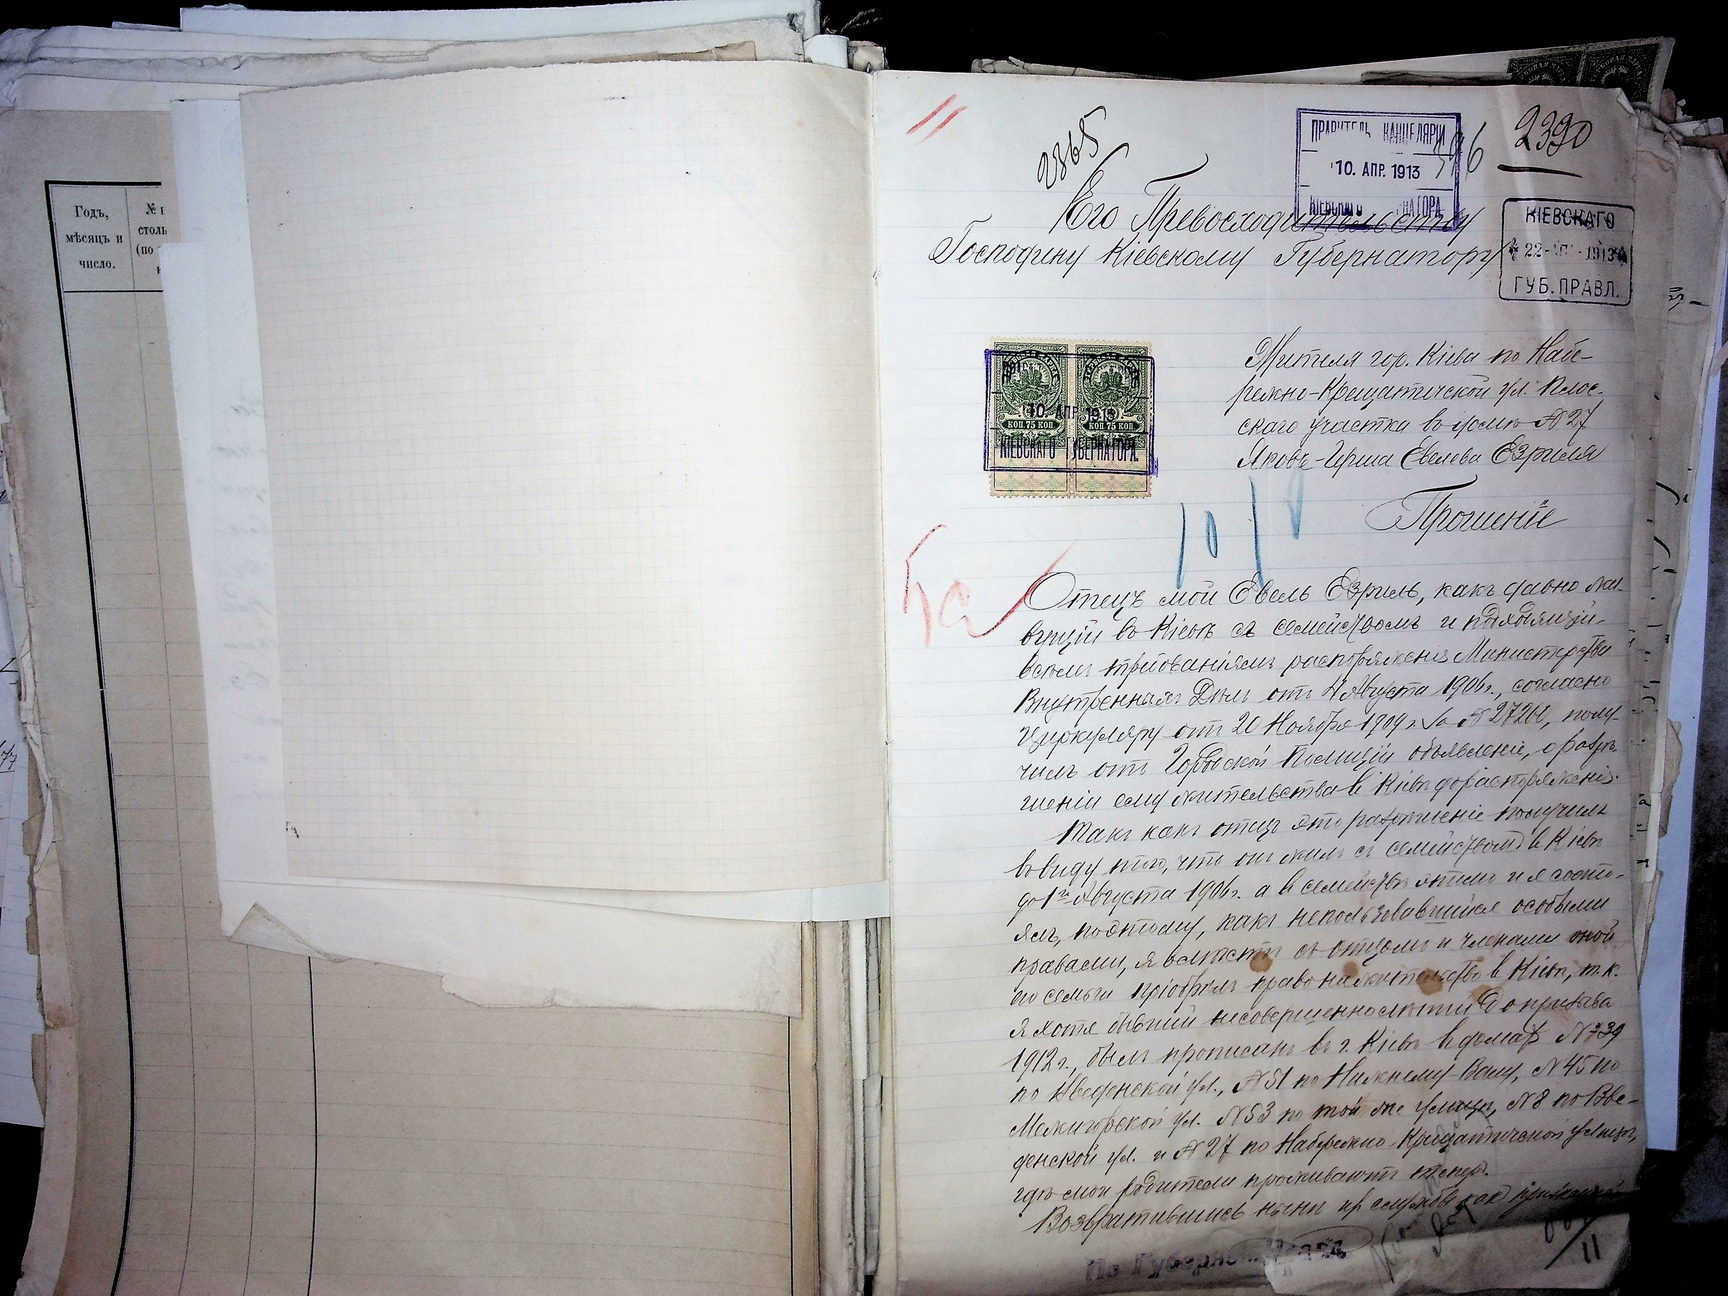 Годъ,
мѣсяцъ и
число.
№
столь
(по
2365
ПРАВИТЕЛЬ КАНЦЕЛЯРІИ
10. АПР. 1913
КІЕВСКАГО
2390
Его Превосходительству
Господину Кіевскому Губернатору
КІЕВСКАГО
22 1913
ГУБ. ПРАВЛ.
КОП. 75 КОП. КОП. 75 КОП.
10. АПР. 1913
КІЕВСКАГО ГУБЕРНАТОРА.
Жителя гор. Кіева по Набе-
режно-Крещатичской ул. Плос-
скаго участка въ домѣ № 27
Яковъ-Герша Евелева Езриля
Прошеніе
1018
Отецъ мой Евель Езриль, какъ давно жи-
вущій въ Кіевѣ съ семействомъ и
всѣмъ требованіямъ распоряженія Министерства
Внутреннихъ Дѣлъ отъ Августа 1906 г., согласно
Циркуляру отъ 20 Ноября 1909 г. за № 27260, полу-
чилъ отъ Городской Полиціи объявленіе, о разрѣ-
шеніи ему жительства въ Кіевѣ до распоряженія.
Такъ какъ отецъ это разрѣшеніе получилъ
въ виду того, что онъ жилъ съ семействомъ въ Кіевѣ
до 1го Августа 1906 г. а въ семействѣ этомъ и я состо-
ялъ, поэтому, какъ непользовавшійся особыми
правами, я вмѣстѣ съ отцомъ и членами
его семьи пріобрѣлъ право на жительство въ Кіевѣ, т. к.
я хотя бывшій несовершеннолѣтній до призыва
1912 г., былъ прописанъ въ г. Кіевѣ въ домахъ № 39
по Введенской ул., № 51 по Нижнему-Валу, № 45 по
Межигорской ул. № 53 по той же улицѣ, № 8 по Вве-
денской ул. и № 27 по Набережно-Крещатичской улицѣ,
гдѣ мои родители проживаютъ теперь.
Возвратившись нынѣ
11